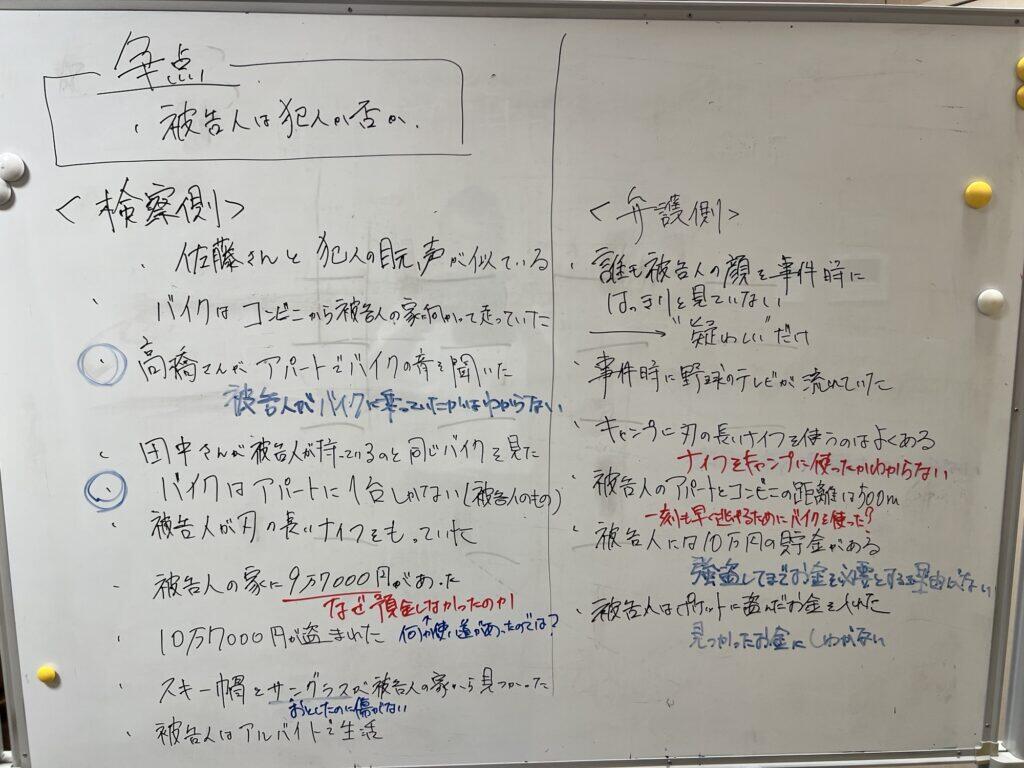 争点
・被告人は犯人か否か.
<検察側>
・佐藤さんと犯人の目元,声が似ている
・バイクはコンビニから被告人の家に向かって走っていた
高橋さんがアパートでバイクの音を聞いた
被告人がバイクに乗っていたかはわからない
・田中さんが被告人が持っているのと同じバイクを見た
バイクはアパートに1台しかない(被告人のもの)
・被告人が刃の長いナイフをもっていた
・被告人の家に9万7000円があった
なぜ預金しなかったのか
・10万7000円が盗まれた
何か使い道があったのでは?
・スキー帽とサングラスが被告人の家から見つかった
おとしたのに傷がない
・被告人はアルバイトで生活
<弁護側>
・誰も被告人の顔を事件時に
はっきりと見ていない
→ "疑わしい"だけ
・事件時に野球のテレビが流れていた
・キャンプに刃の長いナイフを使うのはよくある
ナイフをキャンプに使ったかわからない
・被告人のアパートとコンビニの距離は500m
一刻も早く逃げるためにバイクを使った?
・被告人には10万円の貯金がある
強盗してまでお金を必要とする理由がない
・被告人はポケットに盗んだお金を入れた
見つかったお金にしわがない